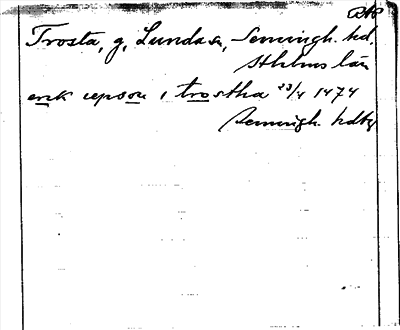 Trosta, g, Lunda sn, Seminghs. hd.
Sthlms län
erik iepson i trostha 23/4 1474
Seminghs. hdbr